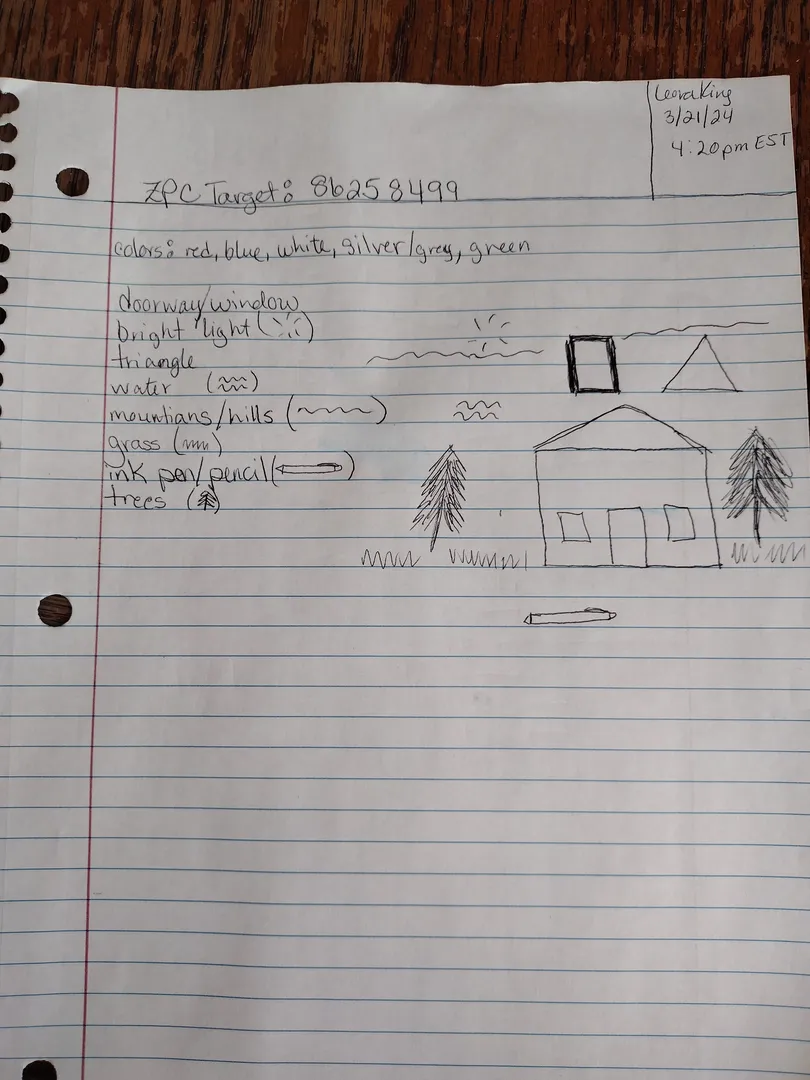 Leora King
3/21/24
4:20pm EST
ZPC Target: 86258499
colors: red, blue, white, silver/grey, green
doorway/window
bright light ( )
triangle
water ( )
mountians/hills ( )
grass ( )
ink pen/pencil ( )
trees ( )